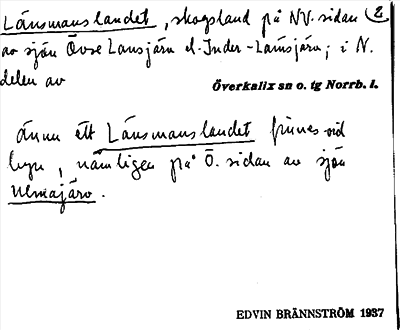 Länsmanslandet, skogsland på NV. sidan (2
av sjön Övre Lansjärv el. Inder-Lansjärv; i N.
delen av
Överkalix sn o. tg Norrb. l.
ännu ett Länsmanslandet finnes vid
byn, nämligen på Ö. sidan av sjön
Ulmajärv.
EDVIN BRÄNNSTRÖM 1937